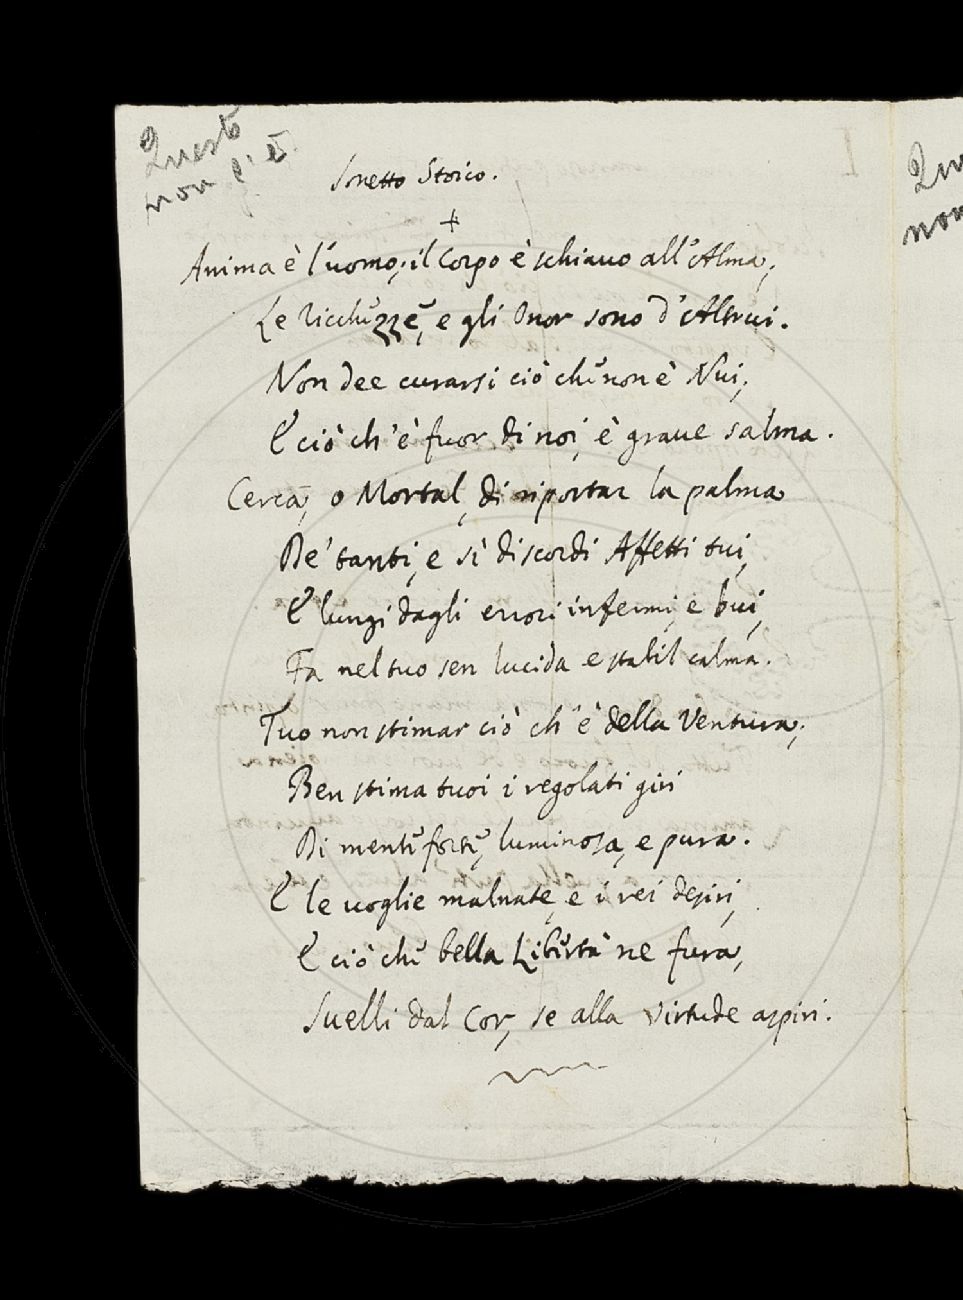 Questo
non c'è
Sonetto Stoico.
Anima è l'uomo; il Corpo è schiavo all'Alma;
Le Ricchezze, e gli Onor sono d'Altrui.
Non dee curarsi ciò che non è Nui;
E ciò ch'è fuor di noi, è grave salma.
Cerca, o Mortal, di riportar la palma
De' tanti, e sì discordi Affetti tui,
E lungi dagli errori infermi, e bui,
Fa nel tuo sen lucida e stabil calma.
Tuo non stimar ciò ch'è della Ventura;
Ben stima tuoi i regolati giri
Di mente forte, luminosa, e pura.
E le voglie malnate, e i rei desiri,
E ciò che bella Libertà ne fura,
Svelli dal Cor, se alla Virtude aspiri.